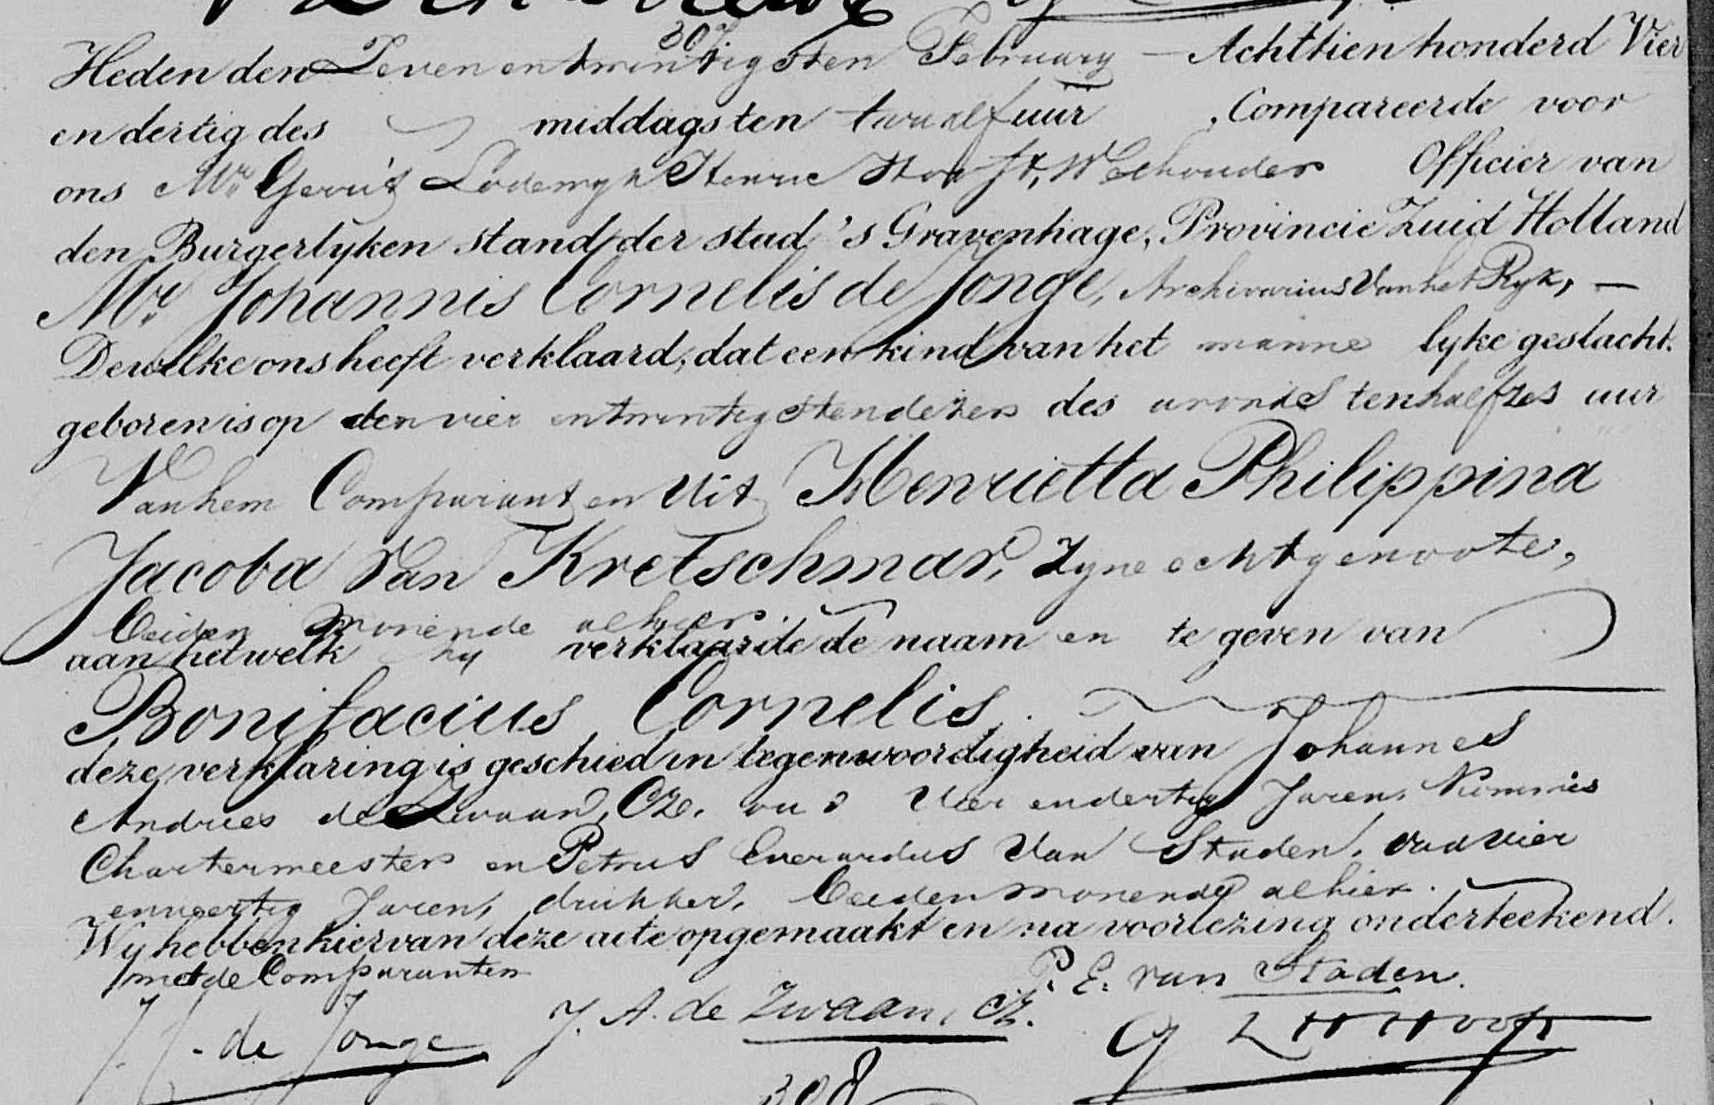 307
Heden den Zeven en twintigsten February — Achttien honderd Vier
en dertig des middags ten twaalf uur, Compareerde voor
ons Mr. Gerrit Lodewyk Henric Hooft, Wethouder Officier van
den Burgerlyken stand der stad 's Gravenhage, Provincie Zuid Holland
Mr. Johannis Cornelis de Jonge, Archivarius van het Ryk, —
Dewelke ons heeft verklaard, dat een kind van het manne lyke geslacht.
geboren is op den vier en twintigsten dezer des avonds ten half zes uur
Van hem Comparant en uit Henrietta Philippina
Jacoba van Kretschmar, zyne echtgenoote,
beiden wonende alhier.
aan hetwelk hy verklaarde de naam en te geven van
Bonifacius Cornelis.
deze verklaring is geschied in tegenwoordigheid van Johannes
Andries de Zwaan, CZ. oud Vier en dertig Jaren, Commies
Chartermeester en Petrus Everardus van Staden, oud vier
en veertig Jaren, drukker, beiden wonende alhier.
Wy hebben hiervan deze acte opgemaakt en na voorlezing onderteekend.
met de Comparanten
P. E. van Staden.
J. A. de Zwaan, CZ.
J. C. de Jonge
G L H Hooft
308